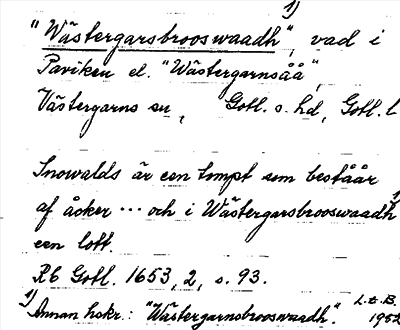 "Wästergarsbrooswaadh"¹⁾, vad i
Paviken el. "Wästergarnsåå",
Västergarns sn, Gotl. s. hd, Gotl. l
Snowalds är een tompt som beståår
af åcker ... och i Wästergarsbrooswaadh¹⁾
een lott.
Rb Gotl. 1653, 2, s. 93.
¹⁾ Annan hskr.: "Wästergarnsbrooswaadh".
L.t.B.
1952